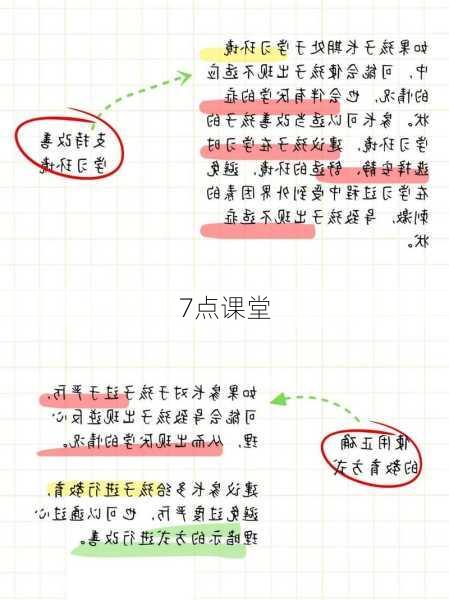 如果孩子长期处于学习环境
中，可能会使孩子出现不适应
的情况，也会伴有厌学的症
状。家长可以适当改善孩子的
学习环境，建议孩子在学习时
选择安静、舒适的环境，避免
在学习过程中受到外界因素的
刺激，导致孩子出现不适症
状。
支持改善
学习环境
7点课堂
如果家长对于孩子过于严厉，
可能会导致孩子出现逆反心
理，从而出现厌学的情况。
建议家长多给孩子进行教育，
避免过度严厉，也可以通过心
理暗示的方式进行改善。
使用正确
的教育方式